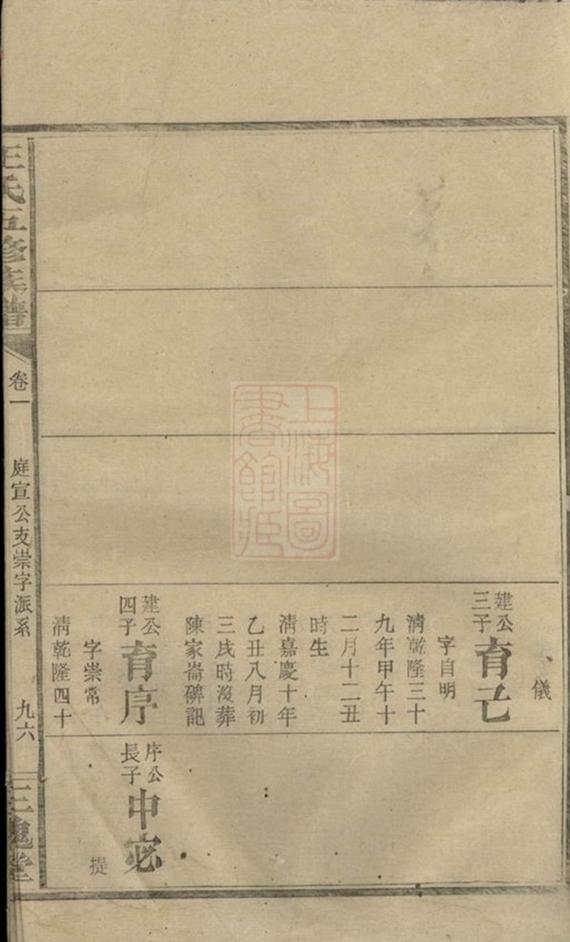 儀
建公
三子
育己
字自明
清乾隆三十
九年甲午十
二月十二丑
時生
清嘉慶十年
乙丑八月初
三戌時沒葬
陳家崙碑記
建公
四子
育序
字崇常
清乾隆四十
序公
長子
中宓
提
王氏五修族譜
卷一
庭宣公支崇字派系
九六
三槐堂
上海圖
書館藏